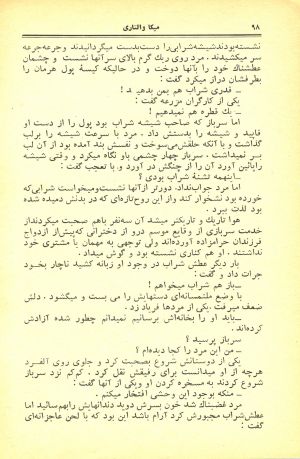 ۹۸ میکا والتاری
نشسته بودند شیشه شرابی را دست بدست میگردانیدند و جرعه جرعه
سر میکشیدند. مرد روی ریگ گرم بالای سر آنها نشست و چشمان
عطشناک خود را بآنها دوخت و در حالیکه کیسهٔ پول هرمان را
بطرفشان دراز میکرد گفت:
ــ قدری شراب هم بمن بدهید!
یکی از کارگران مزرعه گفت:
ــ یک قطره هم نمیدهیم!
اما سرباز که صاحب شیشه شراب بود پول را از دست او
قاپید و شیشه را بدستش داد. مرد با سرعت شیشه را بر لب
گذاشت و با آنکه حلقش میسوخت و نفسش بند آمده بود از آن لب
بر نمیداشت. سرباز چهار چشمی باو نگاه میکرد و وقتی شیشه
را پائین آورد آن را از چنگش در آورد و با تعجب گفت:
ــ اینهمه تشنهٔ شراب بودی؟
اما مرد جواب نداد، دورتر از آنها نشست و میخواست شرابی که
خورده بود نشخوار کند و از این روح تازه‌ای که در بدنش دمیده شده
بود لذت ببرد.
هوا تاریک و تاریکتر میشد آن سه نفر باهم صحبت میکردند از
خدمت سربازی از وقایع موسم درو از دخترانی که پیش از ازدواج
فرزندان حرامزاده آورده‌اند ولی توجهی به مهمان یا مشتری خود
نداشتند. او هم کناری نشسته بود و گوش میداد.
بار دیگر عطش شراب در وجود او زبانه کشید ناچار بخود
جرات داد و گفت:
ــ باز هم شراب میخواهم!
با وضع ملتمسانه‌ای دستهایش را می بست و میگشود. دلش
ضعف میرفت. یکی از مردها فریاد زد.
ــ باید او را بخانه‌اش برسانیم نمیدانم چطور شده آزادش
کرده‌اند.
سرباز پرسید؟
ــ من این مرد را کجا دیده‌ام؟
یکی از دوستانش شروع بصحبت کرد و جلوی روی آلفرد
هرچه از او میدانست برای رفیقش نقل کرد. کم‌کم نزد سرباز
شروع کردند به مسخره کردن او و یکی از آنها گفت:
ــ منکه بوجود این وحشی افتخار میکنم.
مرد غضبناک شد خون بسرش دوید دندانهایش را بهم سائید اما
عطش شراب مجبورش کرد آرام باشد این بود که با لحن عاجزانه‌ای
گفت: